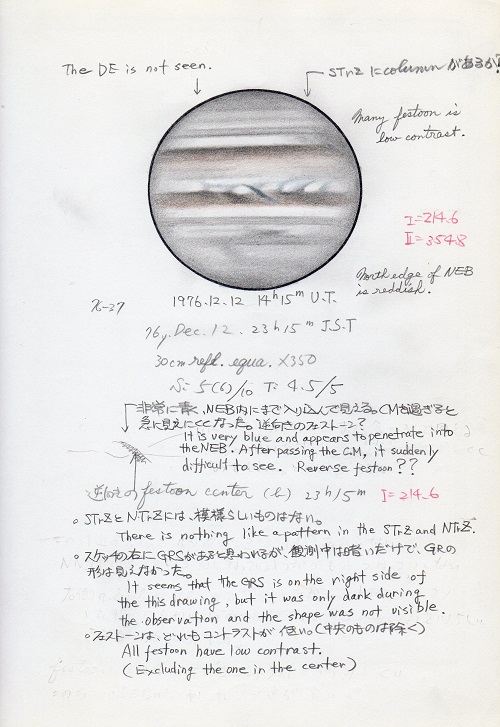 The DE is not seen.
STrZ に column があるか?
Many festoon is
low contrast.
I=214.6
II=354.8
North edge of NEB
is reddish.
1976.12.12 14h15m U.T.
76y. Dec. 12. 23h15m J.S.T
30cm refl. equa. X350
S: 5(6)/10 T: 4.5/5
非常に青く、NEB内にまで入り込んで見える。CMを過ぎると
急に見えにくくなった。逆向きのフェストーン?
It is very blue and appears to penetrate into
the NEB. After passing the C.M, it suddenly
difficult to see. Reverse festoon??
逆向きの festoon center 23h15m I=214.6
○ STrZとNTrZには、模様らしいものはない。
There is nothing like a pattern in the STrZ and NTrZ.
○ スケッチの右にGRSがあると思われるが、観測中は暗いだけで、GRの
形は見えなかった。
It seems that the GRS is on the right side of
the this drawing, but it was only dark during
the observation and the shape was not visible.
○ フェストーンは、どれもコントラストが低い。(中央のものは除く)
All festoon have low contrast.
(Excluding the one in the center)